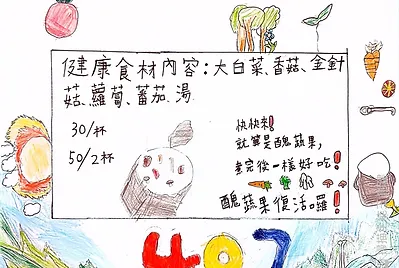 健康食材內容：大白菜、香菇、金針
菇、蘿蔔、蕃茄、湯
30/杯
50/2杯
快快來！
就算是醜蔬果，
煮完後一樣好吃！
醜蔬果復活囉！
407